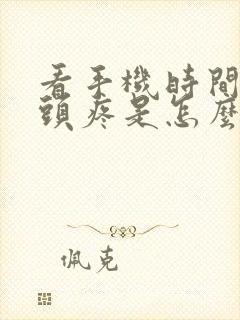 看手機時間
頭疼是怎麼
佩克